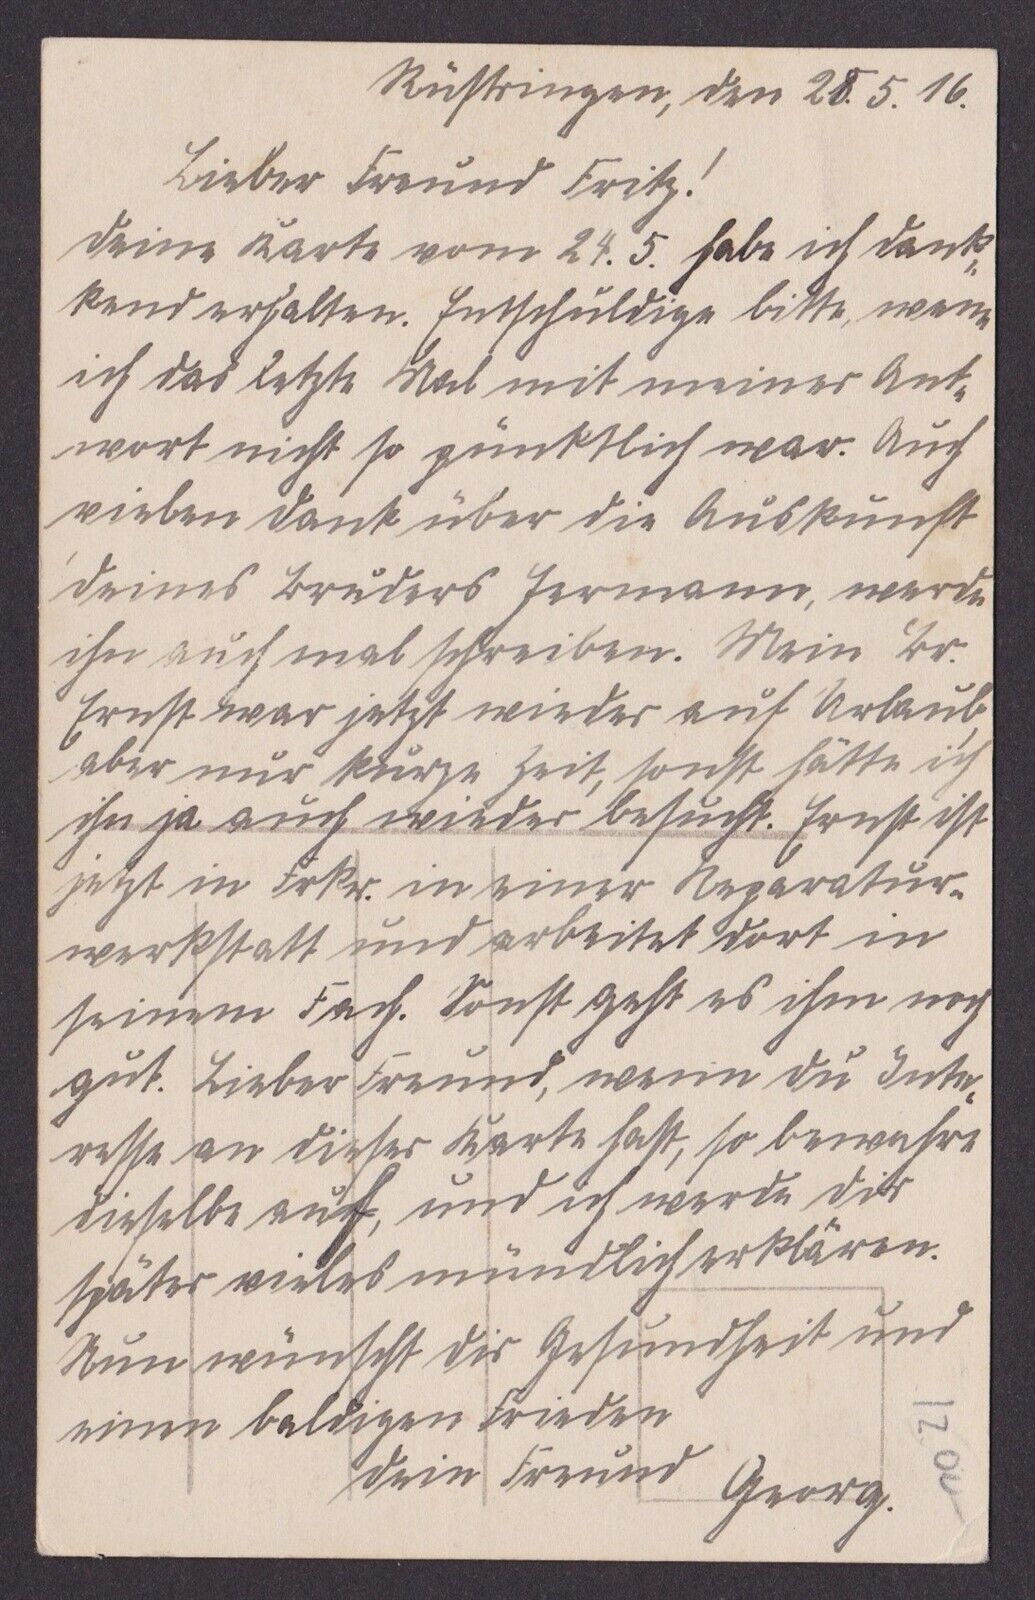 Rüstringen, den 28. 5. 16.
Lieber Freund Fritz!
Deine Karte vom 24. 5. habe ich dank-
kend erhalten. Entschuldige bitte, wenn
ich das letzte Mal mit meiner Ant-
wort nicht so pünktlich war. Auch
vielen Dank über die Auskunft
deines Bruders Hermann, werde
ihn auch mal schreiben. Mein Br.
Ernst war jetzt wieder auf Urlaub,
aber nur kurze Zeit, sonst hätte ich
ihn ja auch wieder besucht. Ernst ist
jetzt in Frkr. in einer Reparatur-
werkstatt und arbeitet dort in
seinem Fach. Sonst geht es ihm noch
gut. Lieber Freund, wenn du Inte-
resse an dieser Karte hast, so bewahre
dieselbe auf, und ich werde dir
später vieles mündlich erklären.
Nun wünscht dir Gesundheit und
einen baldigen Frieden
dein Freund Georg.